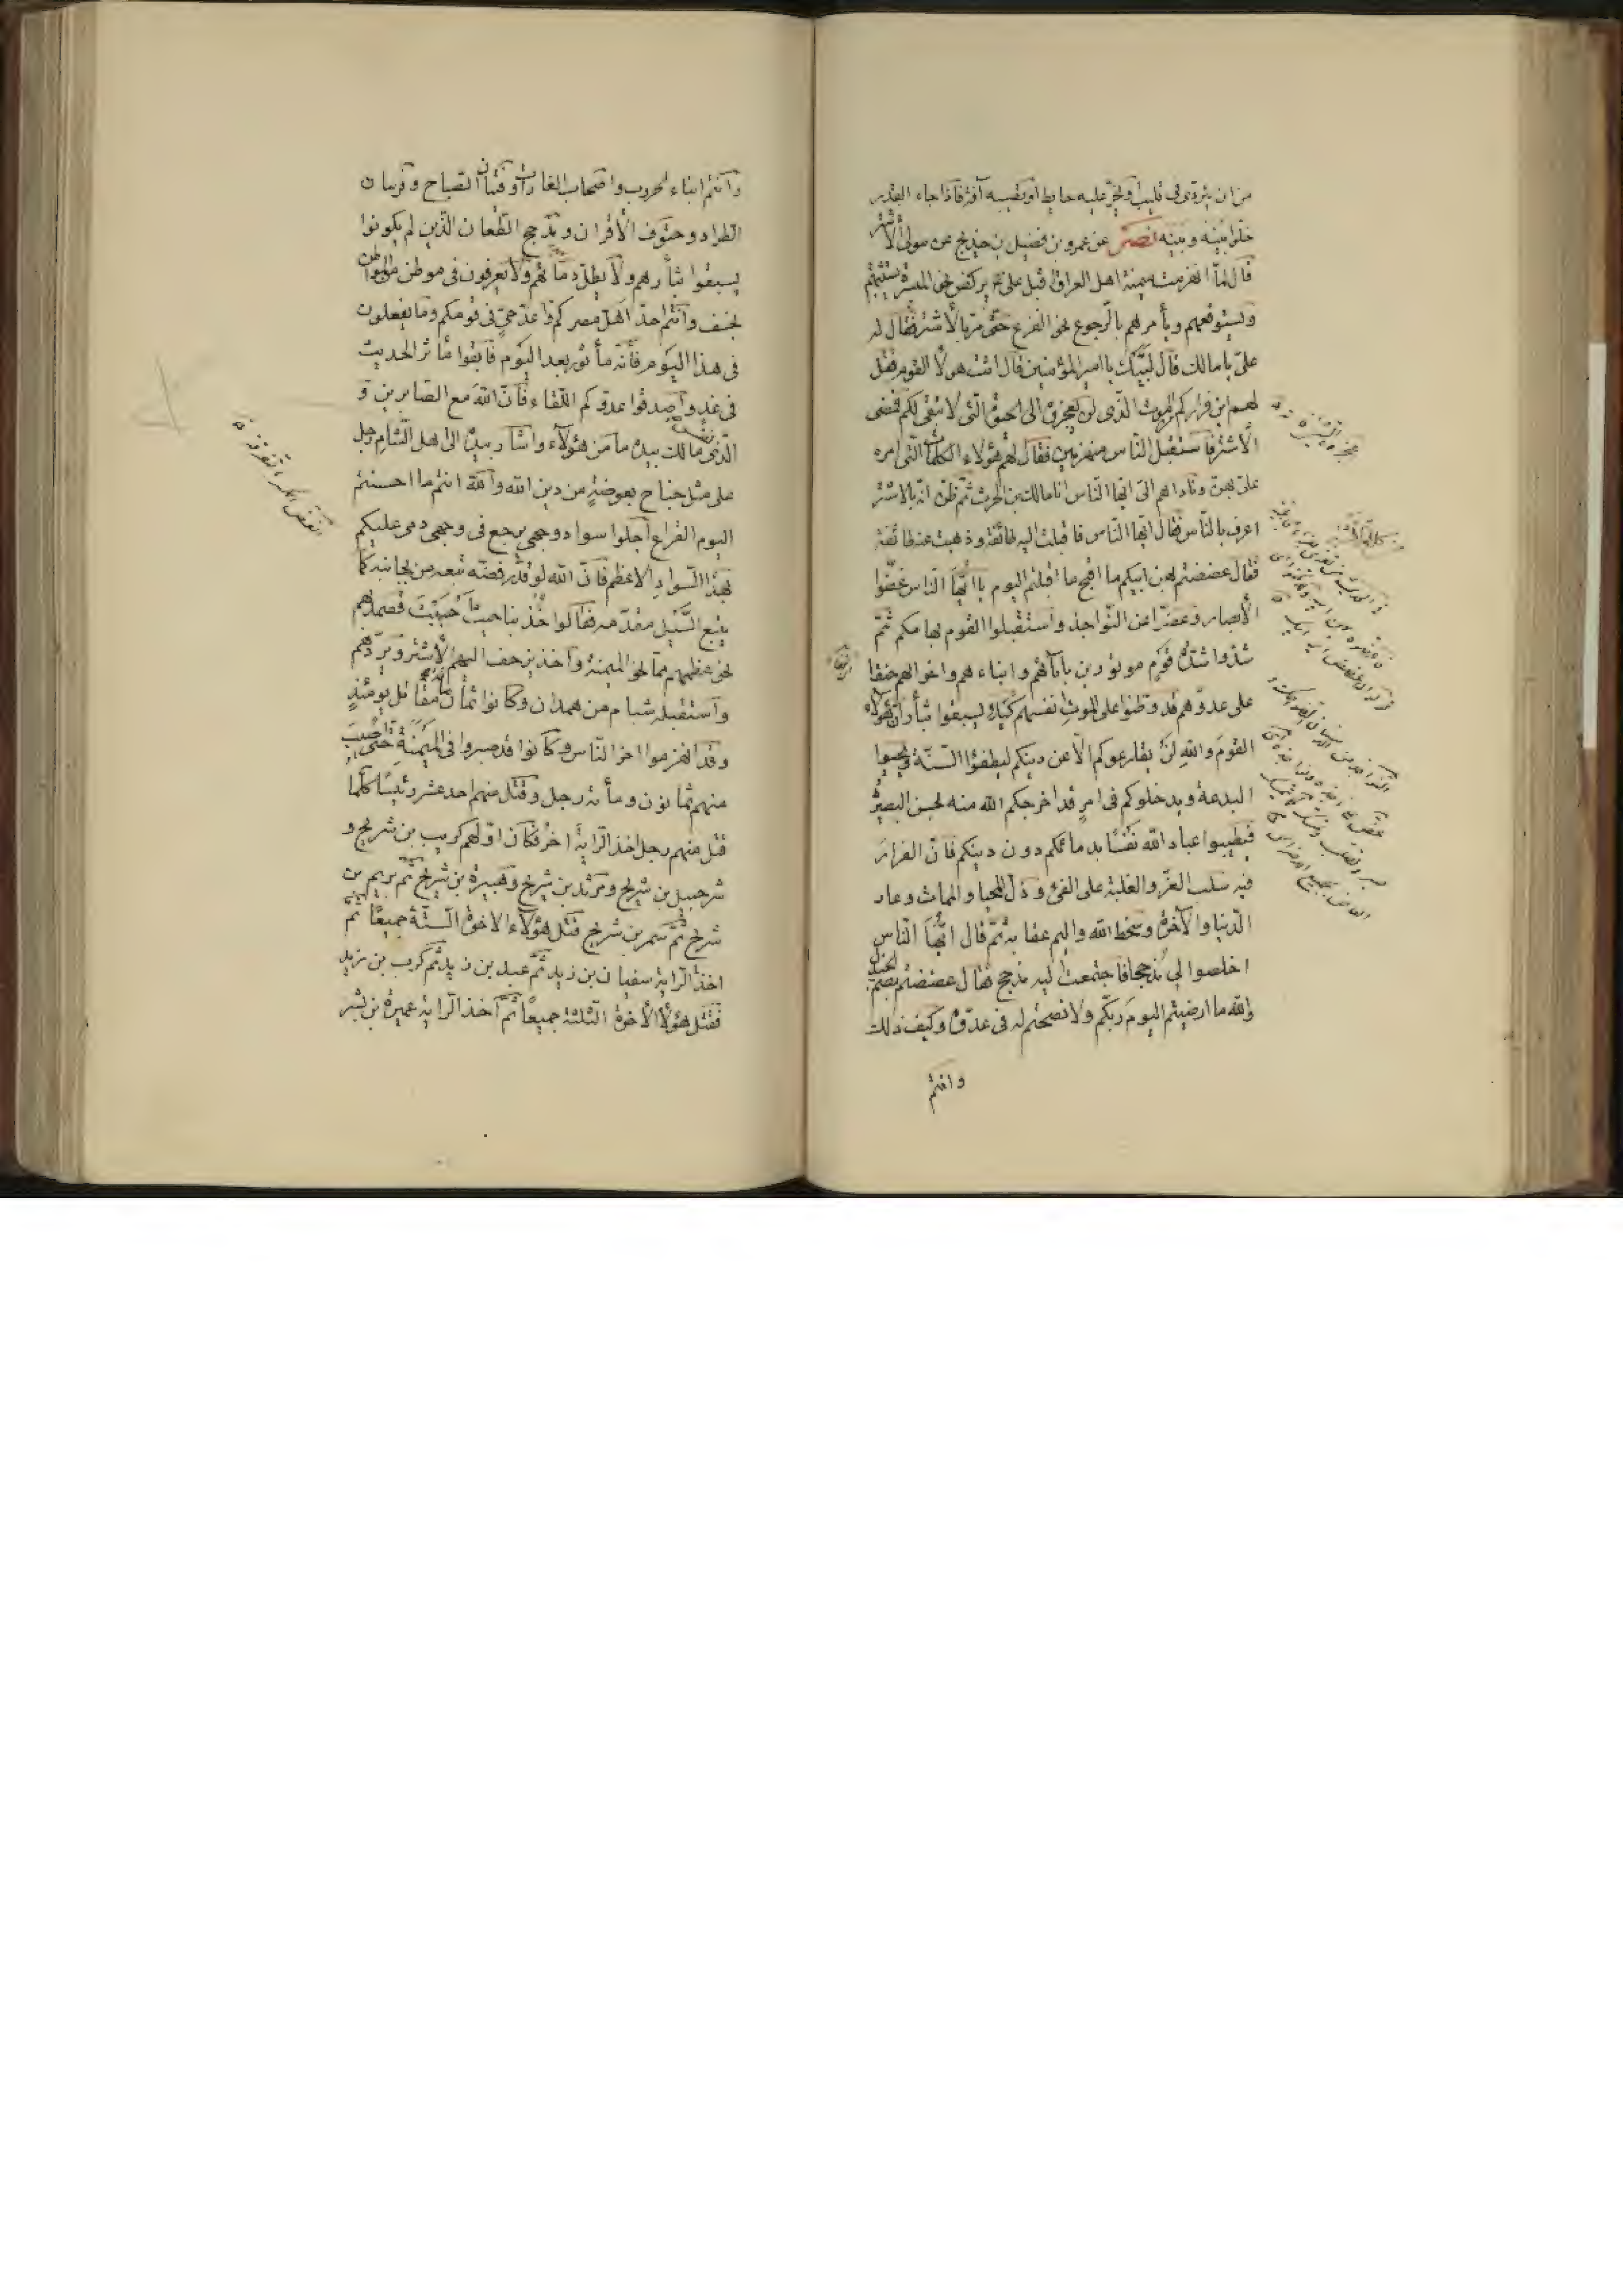 من ان يتردى في قليب او يخر عليه حايط او تصيبه آفة فاذا جاء القدر
خلوا بينه وبينه نصر عن عمرو بن فضيل بن خديج عن مولى الاشتر
قال لما انهزمت ميمنة اهل العراق اقبل على يركض نحو الميسرة يستثيبهم
ويستوقفهم ويأمرهم بالرجوع نحو الفزع حتى مر بالاشتر فقال له
علي يا مالك قال لبيك يا امير المؤمنين قال ائت هولاء القوم فقل
لهم اين فراركم من الموت الذي لن تعجزوه الى الحيوة التي لا تبقى لكم فمضى
الأشتر فاستقبل الناس منهزمين فقال لهم هؤلاء الكلمات التي امره
علي بهن وناداهم الى ايها الناس انا مالك بن الحرث ثم ظن انه بالاشتر
اعرف بالناس فقال ايها الناس فاقبلت اليه طائفة وذهبت عنه طائفة
فقال عضضتم بهن ابيكم ما اقبح ما اقبلتم اليوم يا ايها الناس غضوا
الأبصار وعضوا عن النواجذ واستقبلوا القوم بهامكم ثم
شدوا شدة قوم موتورين بآبائهم وابناءهم واخوانهم حنقا
على عدوهم قد وطنوا على الموت انفسهم كيلا يسبقوا بثأر ان هؤلاء
القوم والله لن يقارعوكم الا عن دينكم ليطفؤا السنة ويحيوا
البدعة ويدخلوكم في امر قد اخرجكم الله منه بحسن البصيرة
فطيبوا عباد الله نفسا بدمائكم دون دينكم فان الفرار
فيه سلب العز والغلبة على الفئ وذل المحيا والممات وعار
الدنيا والآخرة وسخط الله واليم عقابه ثم قال ايها الناس
اخلصوا الي مذحجا فاجتمعت اليه مذحج فقال عضضتم بصم الجندل
والله ما ارضيتم اليوم ربكم ولا نصحتم له في عدوه وكيف ذلك
وانتم
وانتم ابناء الحروب واصحاب الغارات وفتيان الصباح وفرسان
الطراد وحتوف الأقران ومذحج الطعان الذين لم يكونوا
يسبقوا بثأرهم ولا يطل دماؤهم ولا يعرفون في موطن من المواطن
بخسف وانتم احد اهل مصركم واعد حي في قومكم وما تفعلون
في هذا اليوم فانه مأثور بعد اليوم فابقوا مأثر الحديث
في غد واصدقوا عدوكم اللقاء فان الله مع الصابرين و
الذي نفس مالك بيده ما من هؤلاء واشار بيده الى اهل الشام رجل
على مثل جناح بعوضة من دين الله والله انتم ما احسنتم
اليوم القراع اجلوا سواد وجهي يرجع في وجهي دمي عليكم
بهذا السواد الاعظم فان الله لو قد فضه تبعه من بجانبه كما
يتبع السيل مقدمه فقالوا خذ بنا حيث احببت فصمد بهم
نحو عظمهم مما نحو الميمنة واخذ يزحف اليهم الأشتر ويردهم
واستقبله شباب من همدان وكانوا ثمان مائة مقاتل يومئذ
وقد انهزموا اخر الناس وكانوا قد صبروا في الميمنة حتى اصيب
منهم ثمانون ومائة رجل وقتل منهم احد عشر رئيسا كلما
قتل منهم رجل اخذ الراية اخر فكان اولهم كريب بن شريح و
شرحبيل بن شريح ومرثد بن شريح وهبيرة بن شريح ثم يريم بن
شريح ثم شمر بن شريح قتل هؤلاء الاخوة الستة جميعا ثم
اخذ الراية سفيان بن زيد ثم عبد بن زيد ثم كرب بن زيد
فقتل هؤلاء الأخوة الثلثة جميعا ثم اخذ الراية عميرة بن بشر